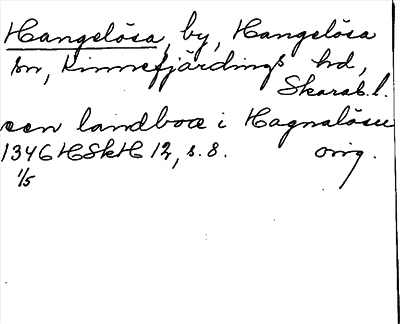 Hangelösa, by, Hangelösa
sn, Kinnefjärdings hd,
Skarab. l.
een landboæ i Hagnaløsu
1346 HSkH 12, s. 8. orig.
1/5